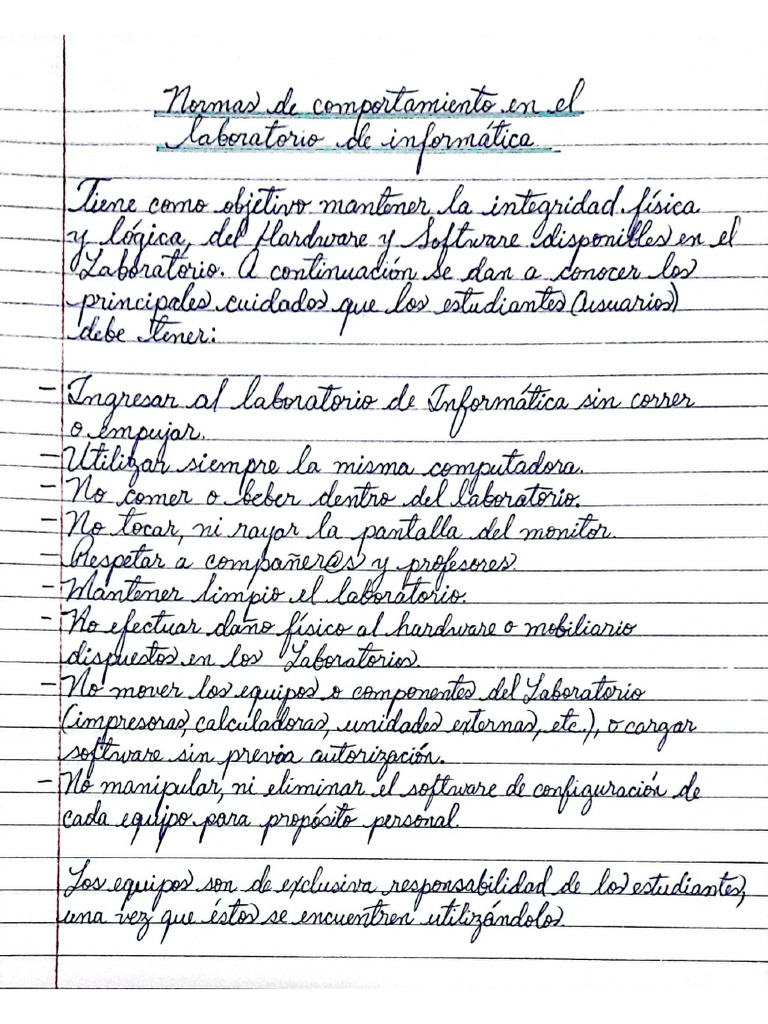 Normas de comportamiento en el
laboratorio de informática
Tiene como objetivo mantener la integridad física
y lógica, del Hardware y Software disponibles en el
Laboratorio. A continuación se dan a conocer los
principales cuidados que los estudiantes (usuarios)
debe tener:
- Ingresar al laboratorio de Informática sin correr
o empujar.
- Utilizar siempre la misma computadora.
- No comer o beber dentro del laboratorio.
- No tocar, ni rayar la pantalla del monitor.
- Respetar a compañer@s y profesores.
- Mantener limpio el laboratorio.
- No efectuar daño físico al hardware o mobiliario
dispuestos en los Laboratorios.
- No mover los equipos o componentes del Laboratorio
(impresoras, calculadoras, unidades externas, etc.), o cargar
software sin previa autorización.
- No manipular, ni eliminar el software de configuración de
cada equipo para propósito personal.
Los equipos son de exclusiva responsabilidad de los estudiantes,
una vez que éstos se encuentren utilizándolos.